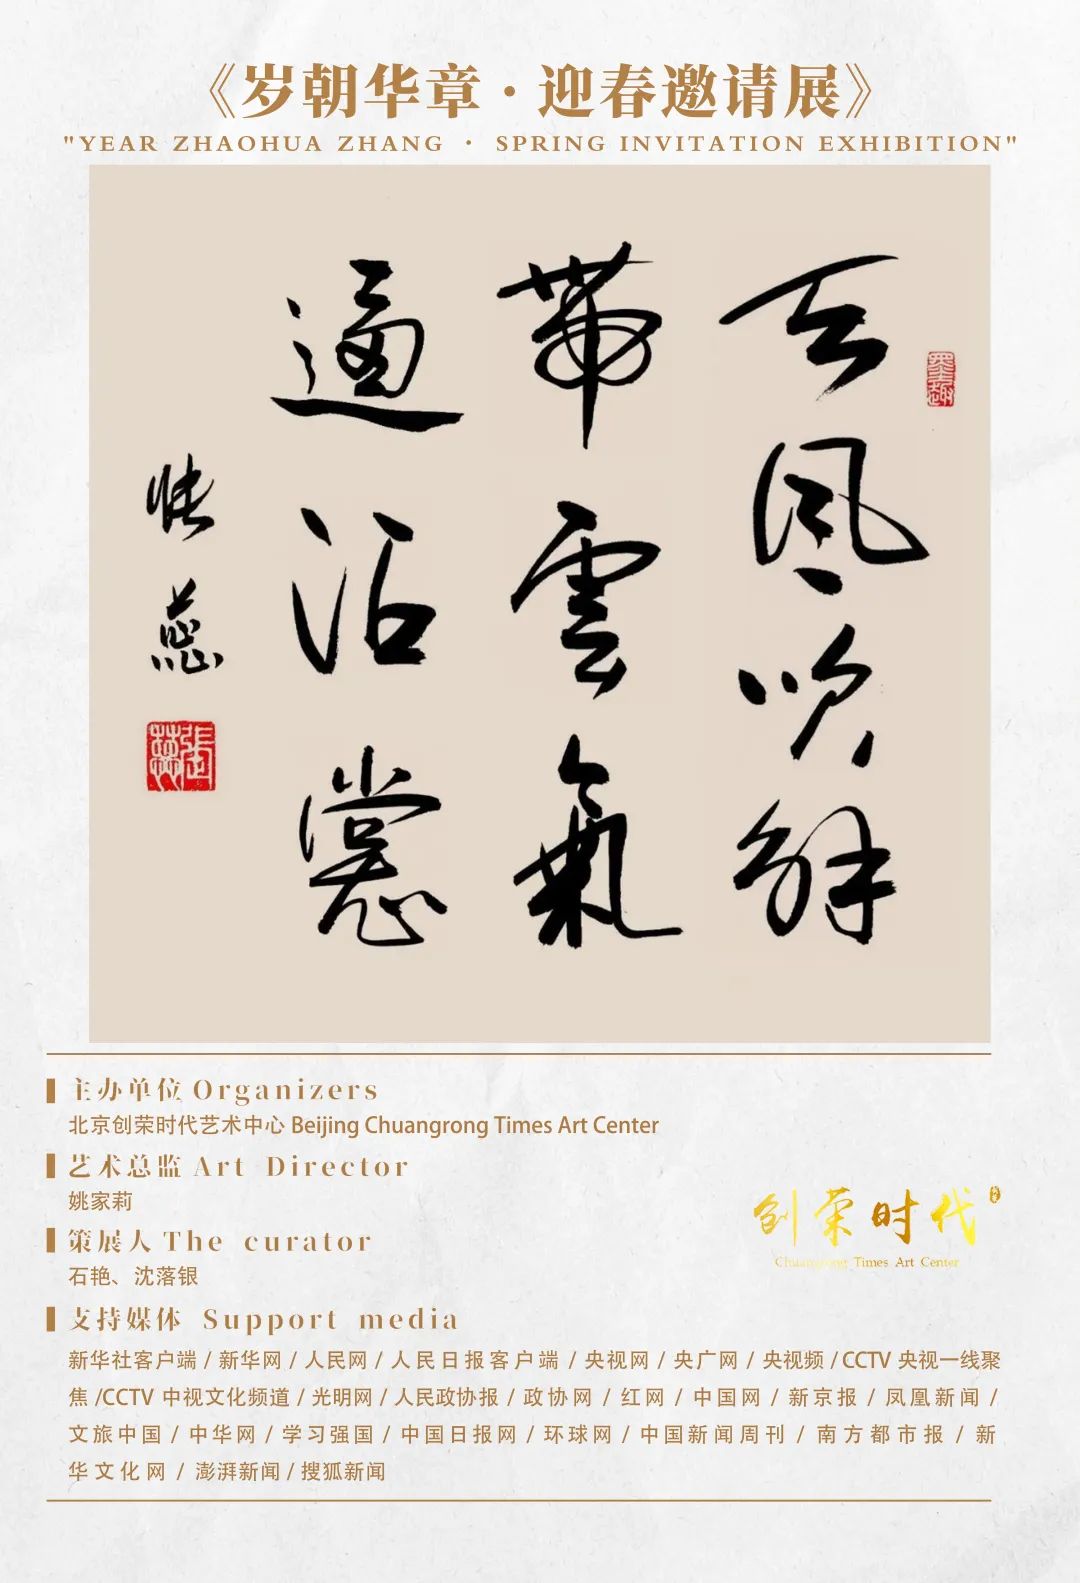 《岁朝华章·迎春邀请展》
"YEAR ZHAOHUA ZHANG · SPRING INVITATION EXHIBITION"
天风吹解
带雲氣
逼沾裳
张蕊
张蕊
主办单位 Organizers
北京创荣时代艺术中心 Beijing Chuangrong Times Art Center
艺术总监 Art Director
姚家莉
策展人 The curator
石艳、沈落银
创荣时代
Chuangrong Times Art Center
支持媒体 Support media
新华社客户端 / 新华网 / 人民网 / 人民日报客户端 / 央视网 / 央广网 / 央视频 / CCTV 央视一线聚
焦 /CCTV 中视文化频道 / 光明网 / 人民政协报 / 政协网 / 红网 / 中国网 / 新京报 / 凤凰新闻 /
文旅中国 / 中华网 / 学习强国 / 中国日报网 / 环球网 / 中国新闻周刊 / 南方都市报 / 新
华文化网 / 澎湃新闻 / 搜狐新闻